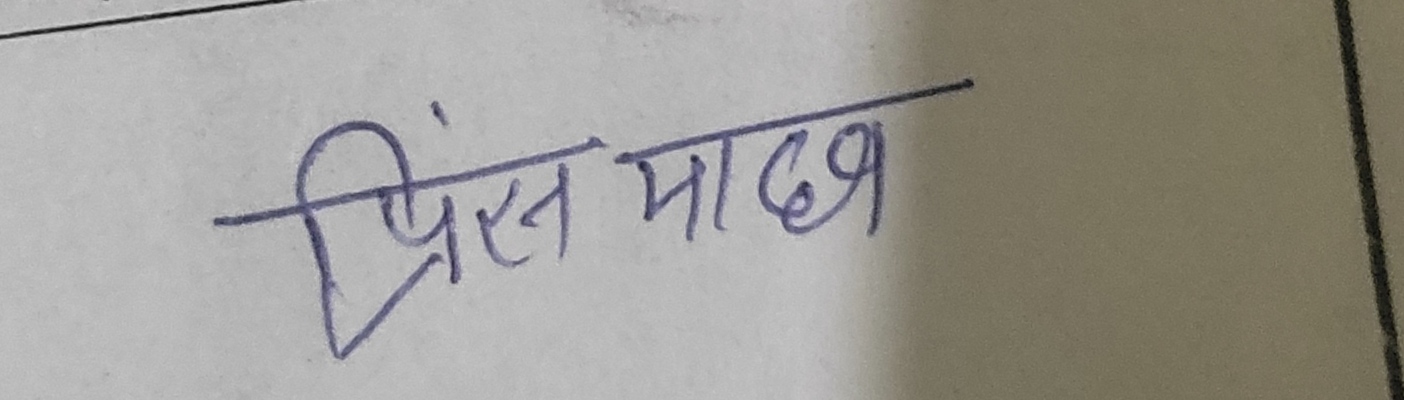 प्रिंस यादव